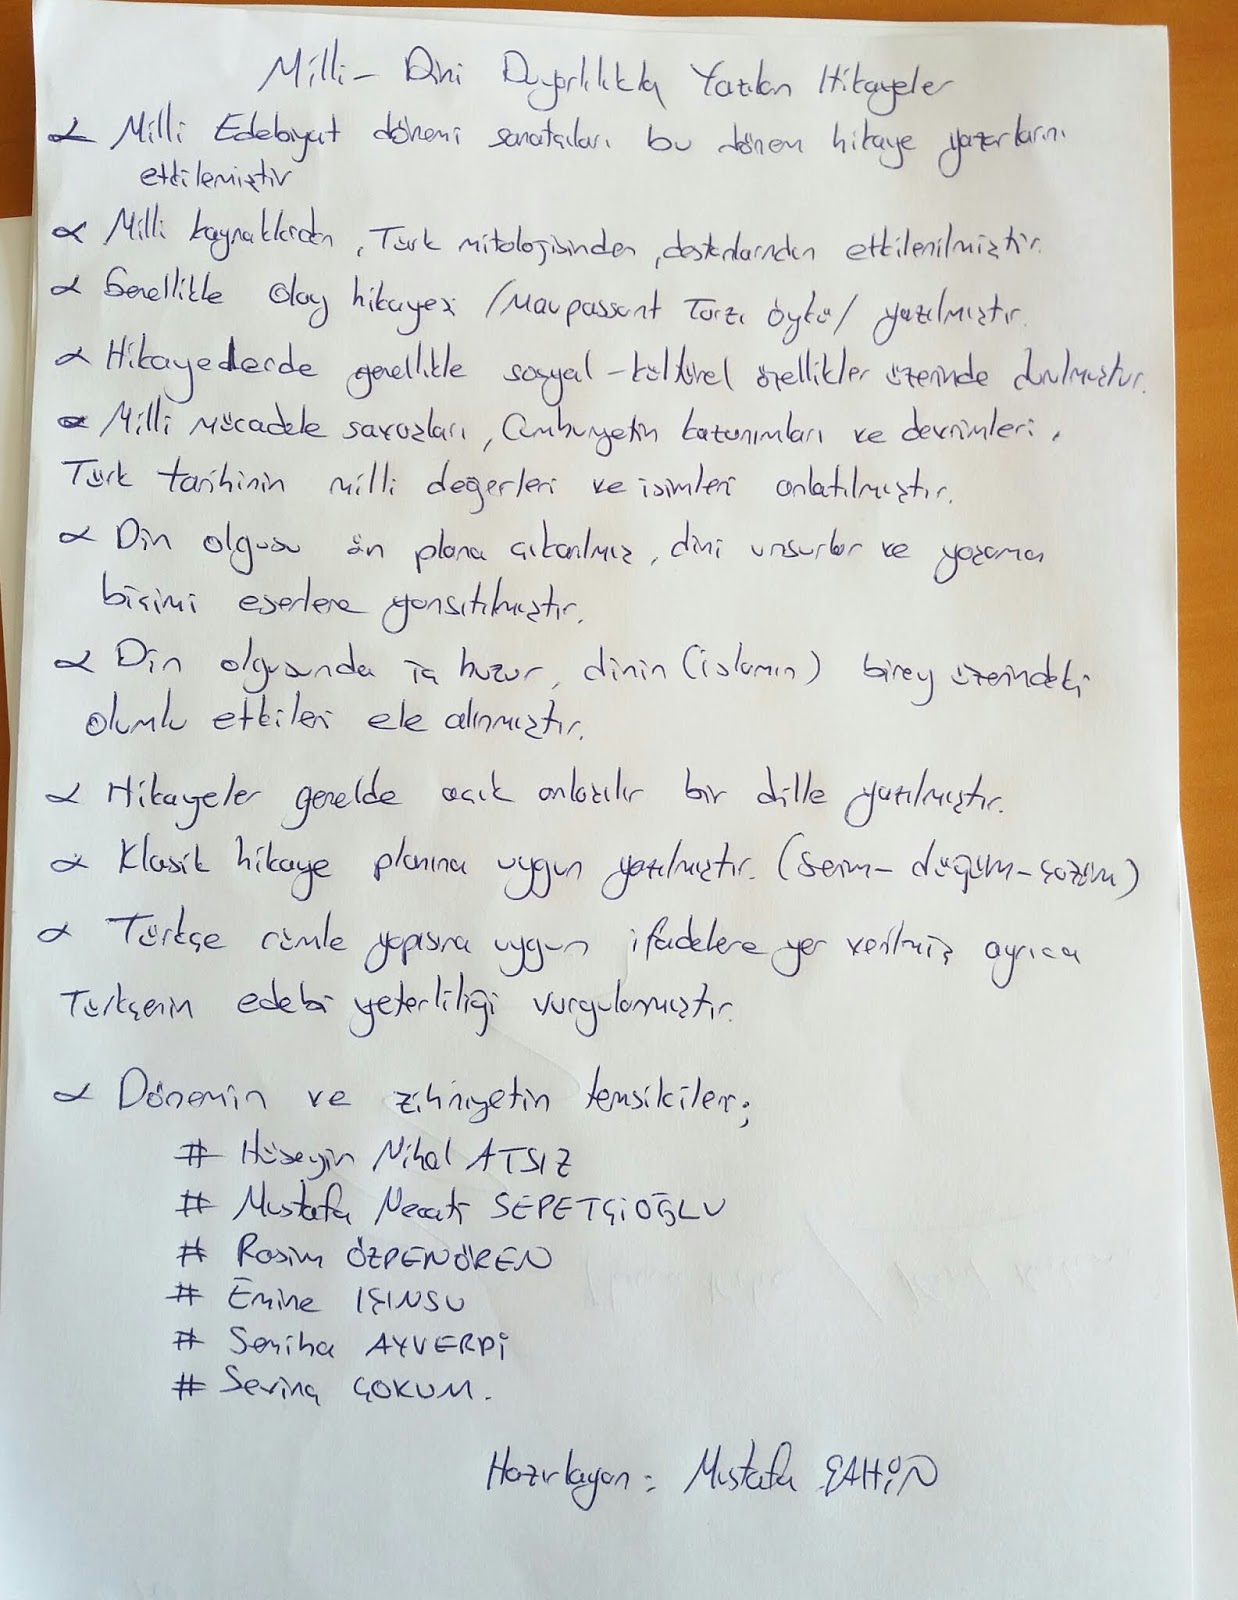 Milli - Dini Duyarlılıkla Yazılan Hikayeler
∝ Milli Edebiyat dönemi sanatçıları bu dönem hikaye yazarlarını
etkilemiştir
∝ Milli kaynaklardan, Türk mitolojisinden, destanlarından etkilenilmiştir.
∝ Genellikle olay hikayesi /Maupassant Tarzı öykü/ yazılmıştır.
∝ Hikayelerde genellikle sosyal-kültürel özellikler üzerinde durulmuştur.
∝ Milli mücadele savaşları, Cumhuriyetin kazanımları ve devrimleri,
Türk tarihinin milli değerleri ve isimleri anlatılmıştır.
∝ Din olgusu ön plana çıkarılmış, dini unsurlar ve yaşama
biçimi eserlere yansıtılmıştır.
∝ Din olgusunda iç huzur, dinin (islamın) birey üzerindeki
olumlu etkileri ele alınmıştır.
∝ Hikayeler genelde açık anlaşılır bir dille yazılmıştır.
∝ Klasik hikaye planına uygun yazılmıştır. (Serim-düğüm-çözüm)
∝ Türkçe cümle yapısına uygun ifadelere yer verilmiş ayrıca
Türkçenin edebi yeterliliği vurgulanmıştır.
∝ Dönemin ve zihniyetin temsilcileri;
# Hüseyin Nihal ATSIZ
# Mustafa Necati SEPETÇİOĞLU
# Rasim ÖZPENÖREN
# Emine IŞINSU
# Semiha AYVERDİ
# Sevinç ÇOKUM.
Hazırlayan: Mustafa ŞAHİN